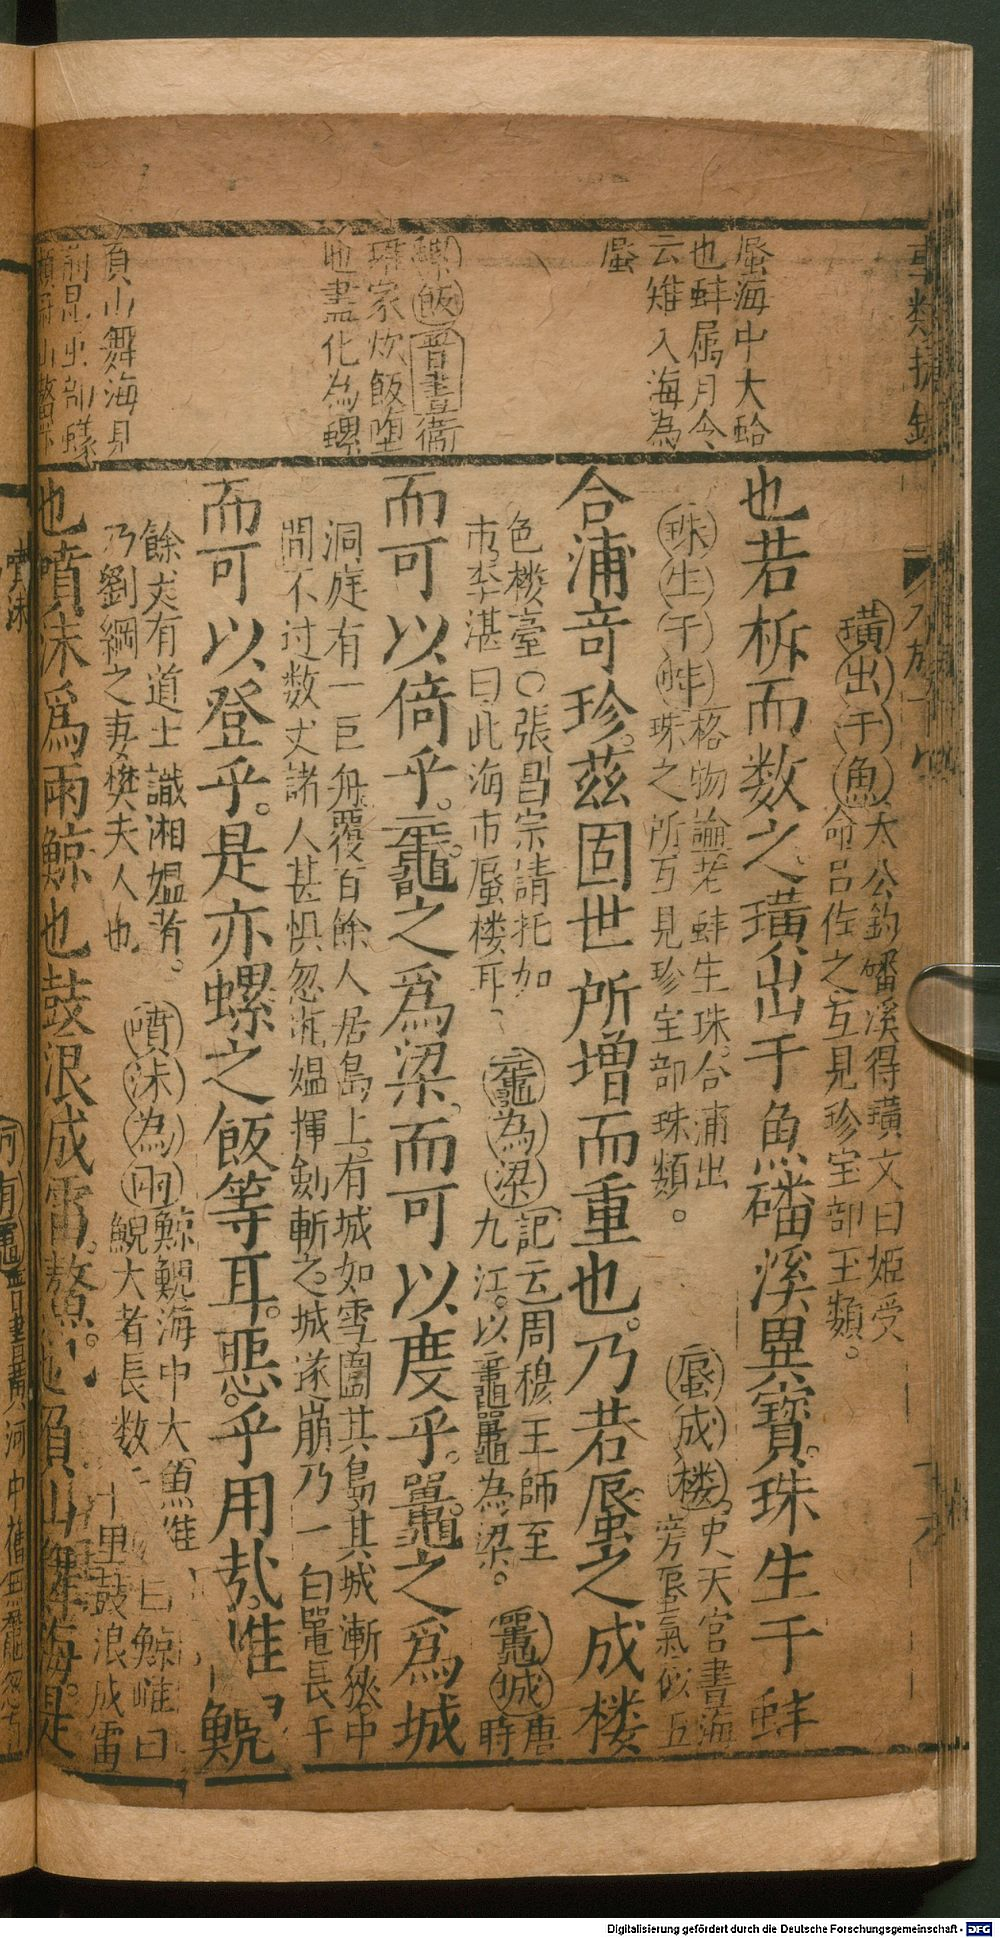 蜃海中大蛤
也蚌属月令
云雉入海為
蜃
螺飯晋書衞
瓘家炊飯堕
地盡化為螺
負山舞海見
前昆虫部蟻
類
璜出于魚太公釣磻溪得璜文曰姬受
命吕佐之互見珍宝部玉類。
也若柝而数之璜出于魚磻溪異寳。珠生于蚌
珠生于蚌格物論老蚌生珠。合浦出
珠之所互見珍宝部珠類。
蜃成楼史天官書海
旁蜃氣依五
合浦竒珍。茲固世所增而重也。乃若蜃之成楼
色楼臺〇張昌宗請托加
市李湛曰此海市蜃楼耳
黿為梁記云周穆王師至
九江。以黿鼉為梁。
鼉城唐
時
而可以倚乎。黿之爲梁。而可以度乎。鼉之爲城
洞庭有一巨舟覆百餘人居島上。有城如雪圍其島其城漸狹。中
間不过数丈諸人甚惧忽有媼揮劍斬之。城遂崩乃一白鼉長千
而可以登乎。是亦螺之飯等耳。惡乎用哉。惟鯢
餘丈有道士識湘媼者。
乃劉綱之妻樊夫人也
噴沫為雨鯨鯢海中大魚雄曰鯨雌曰
鯢大者長数十里鼓浪成雷
也噴沫爲雨鯨也鼓浪成雷。鰲也負山舞海。是
Digitalisierung gefördert durch die Deutsche Forschungsgemeinschaft - DFG